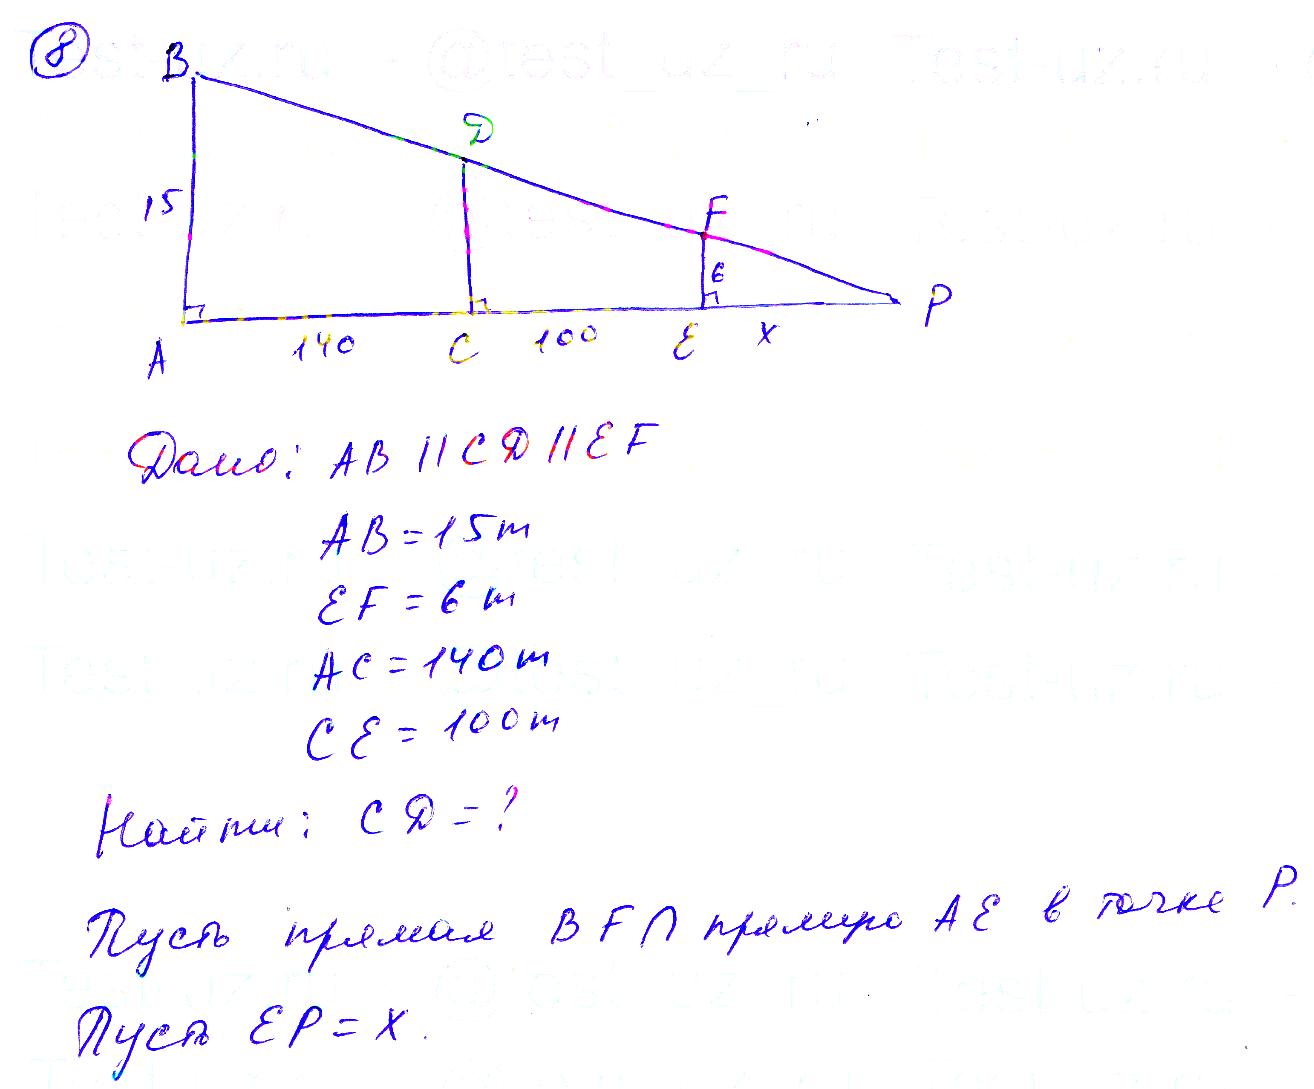 8
Test-uz.ru - @test_uz_ru Test-uz.ru
B
D
15
F
6
P
A
140
C
100
E
x
Дано: AB || CD || EF
AB = 15 m
EF = 6 m
AC = 140 m
CE = 100 m
Найти: CD = ?
Пусть прямая BF ∩ прямую AE в точке P.
Пусть EP = x.